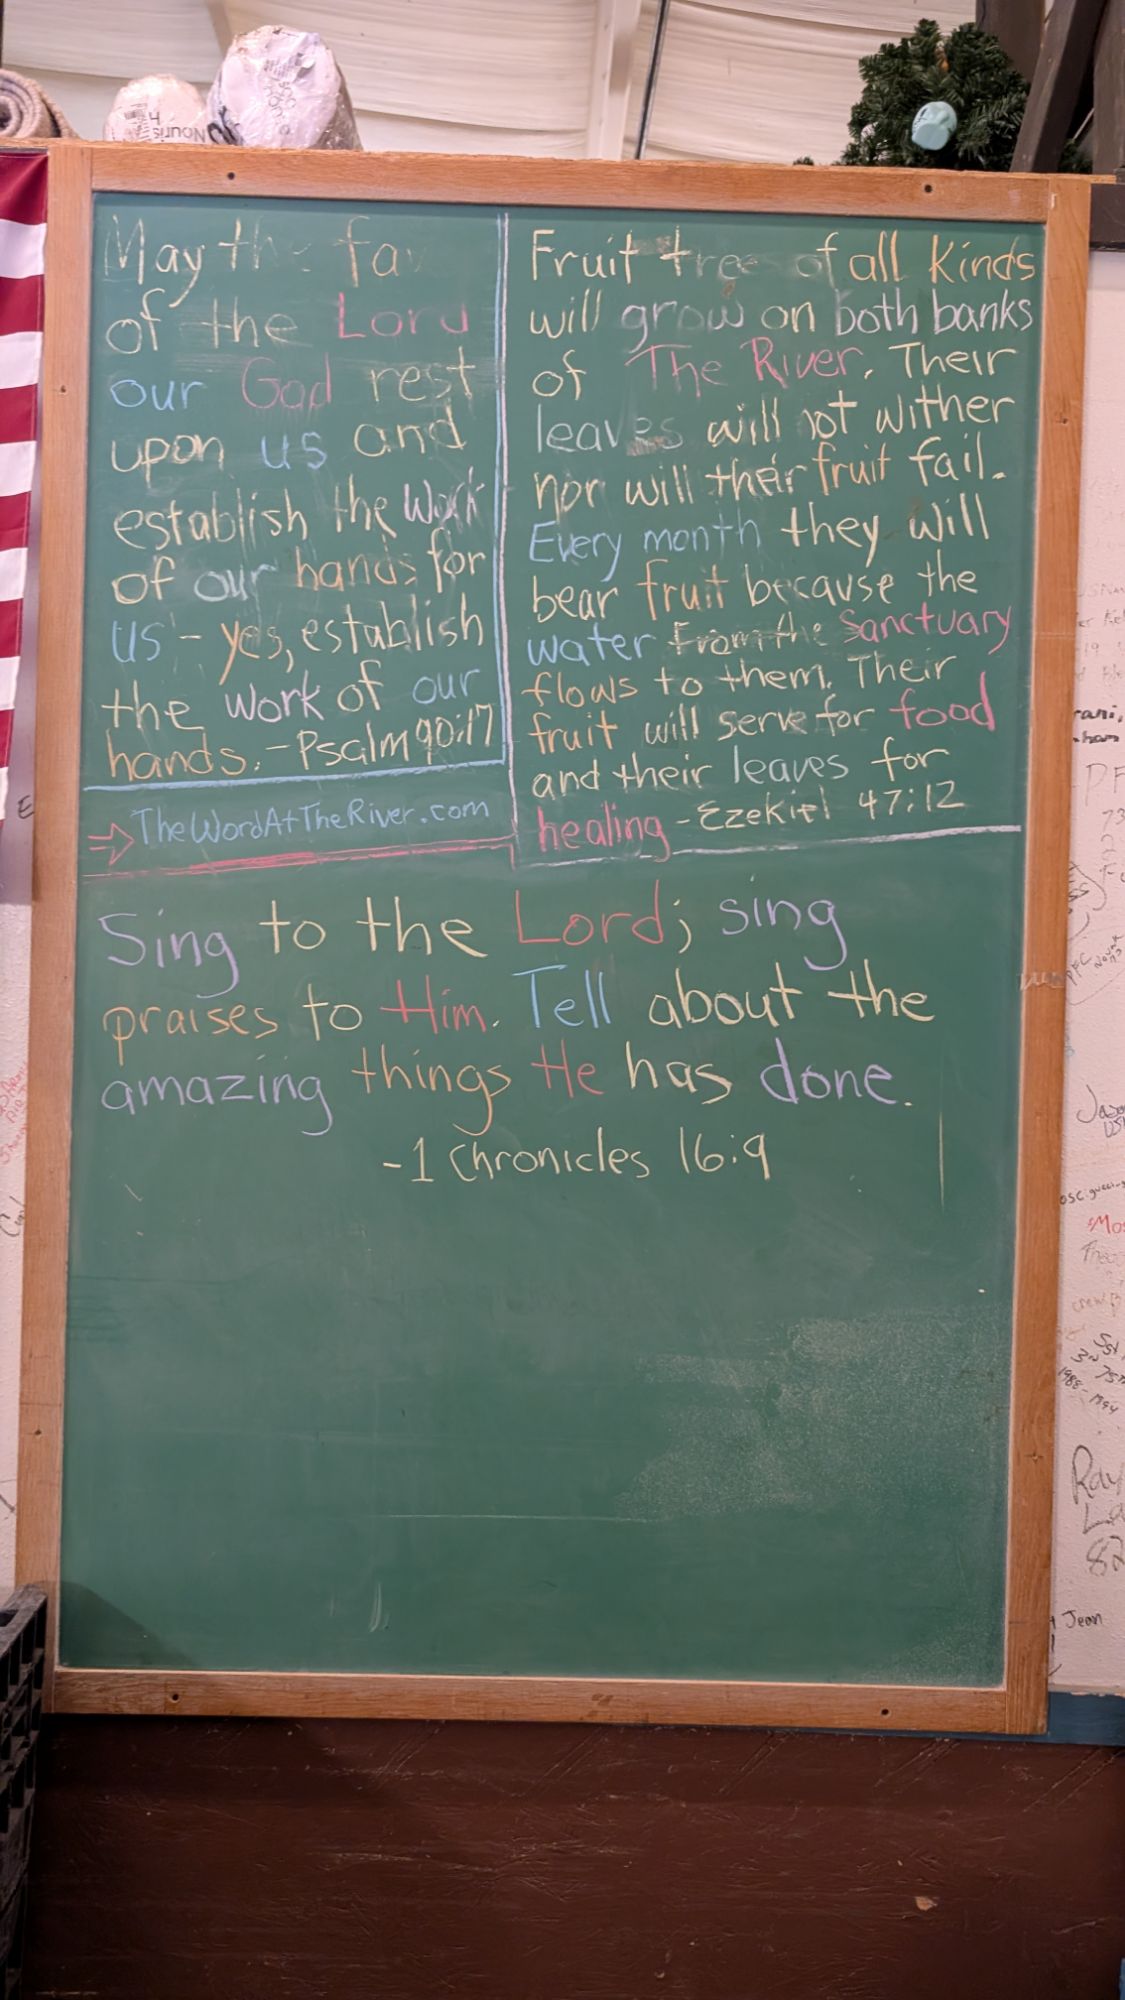 May the fav
of the Lord
our God rest
upon us and
establish the work
of our hands for
us - yes, establish
the work of our
hands. - Psalm 90:17
⇒ TheWordAtTheRiver.com
Fruit trees of all Kinds
will grow on both banks
of The River. Their
leaves will not wither
nor will their fruit fail.
Every month they will
bear fruit because the
water from the Sanctuary
flows to them. Their
fruit will serve for food
and their leaves for
healing - Ezekiel 47:12
Sing to the Lord; sing
praises to Him. Tell about the
amazing things He has done.
- 1 Chronicles 16:9
Jean